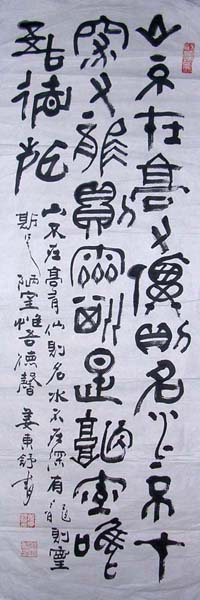 山不在高又僊則名水不才
罙又龍則霝斯是陋室唯
吾德馨
山不在高有仙則名水不在深有龍則靈
斯是陋室惟吾德馨 姜東舒書